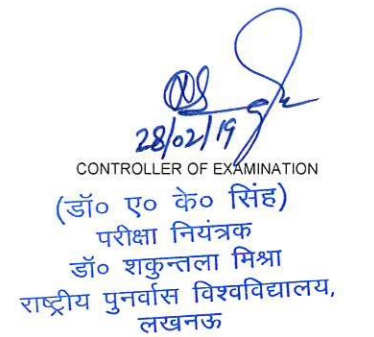 28/02/19
CONTROLLER OF EXAMINATION
(डॉ० ए० के० सिंह)
परीक्षा नियंत्रक
डॉ० शकुन्तला मिश्रा
राष्ट्रीय पुनर्वास विश्वविद्यालय,
लखनऊ